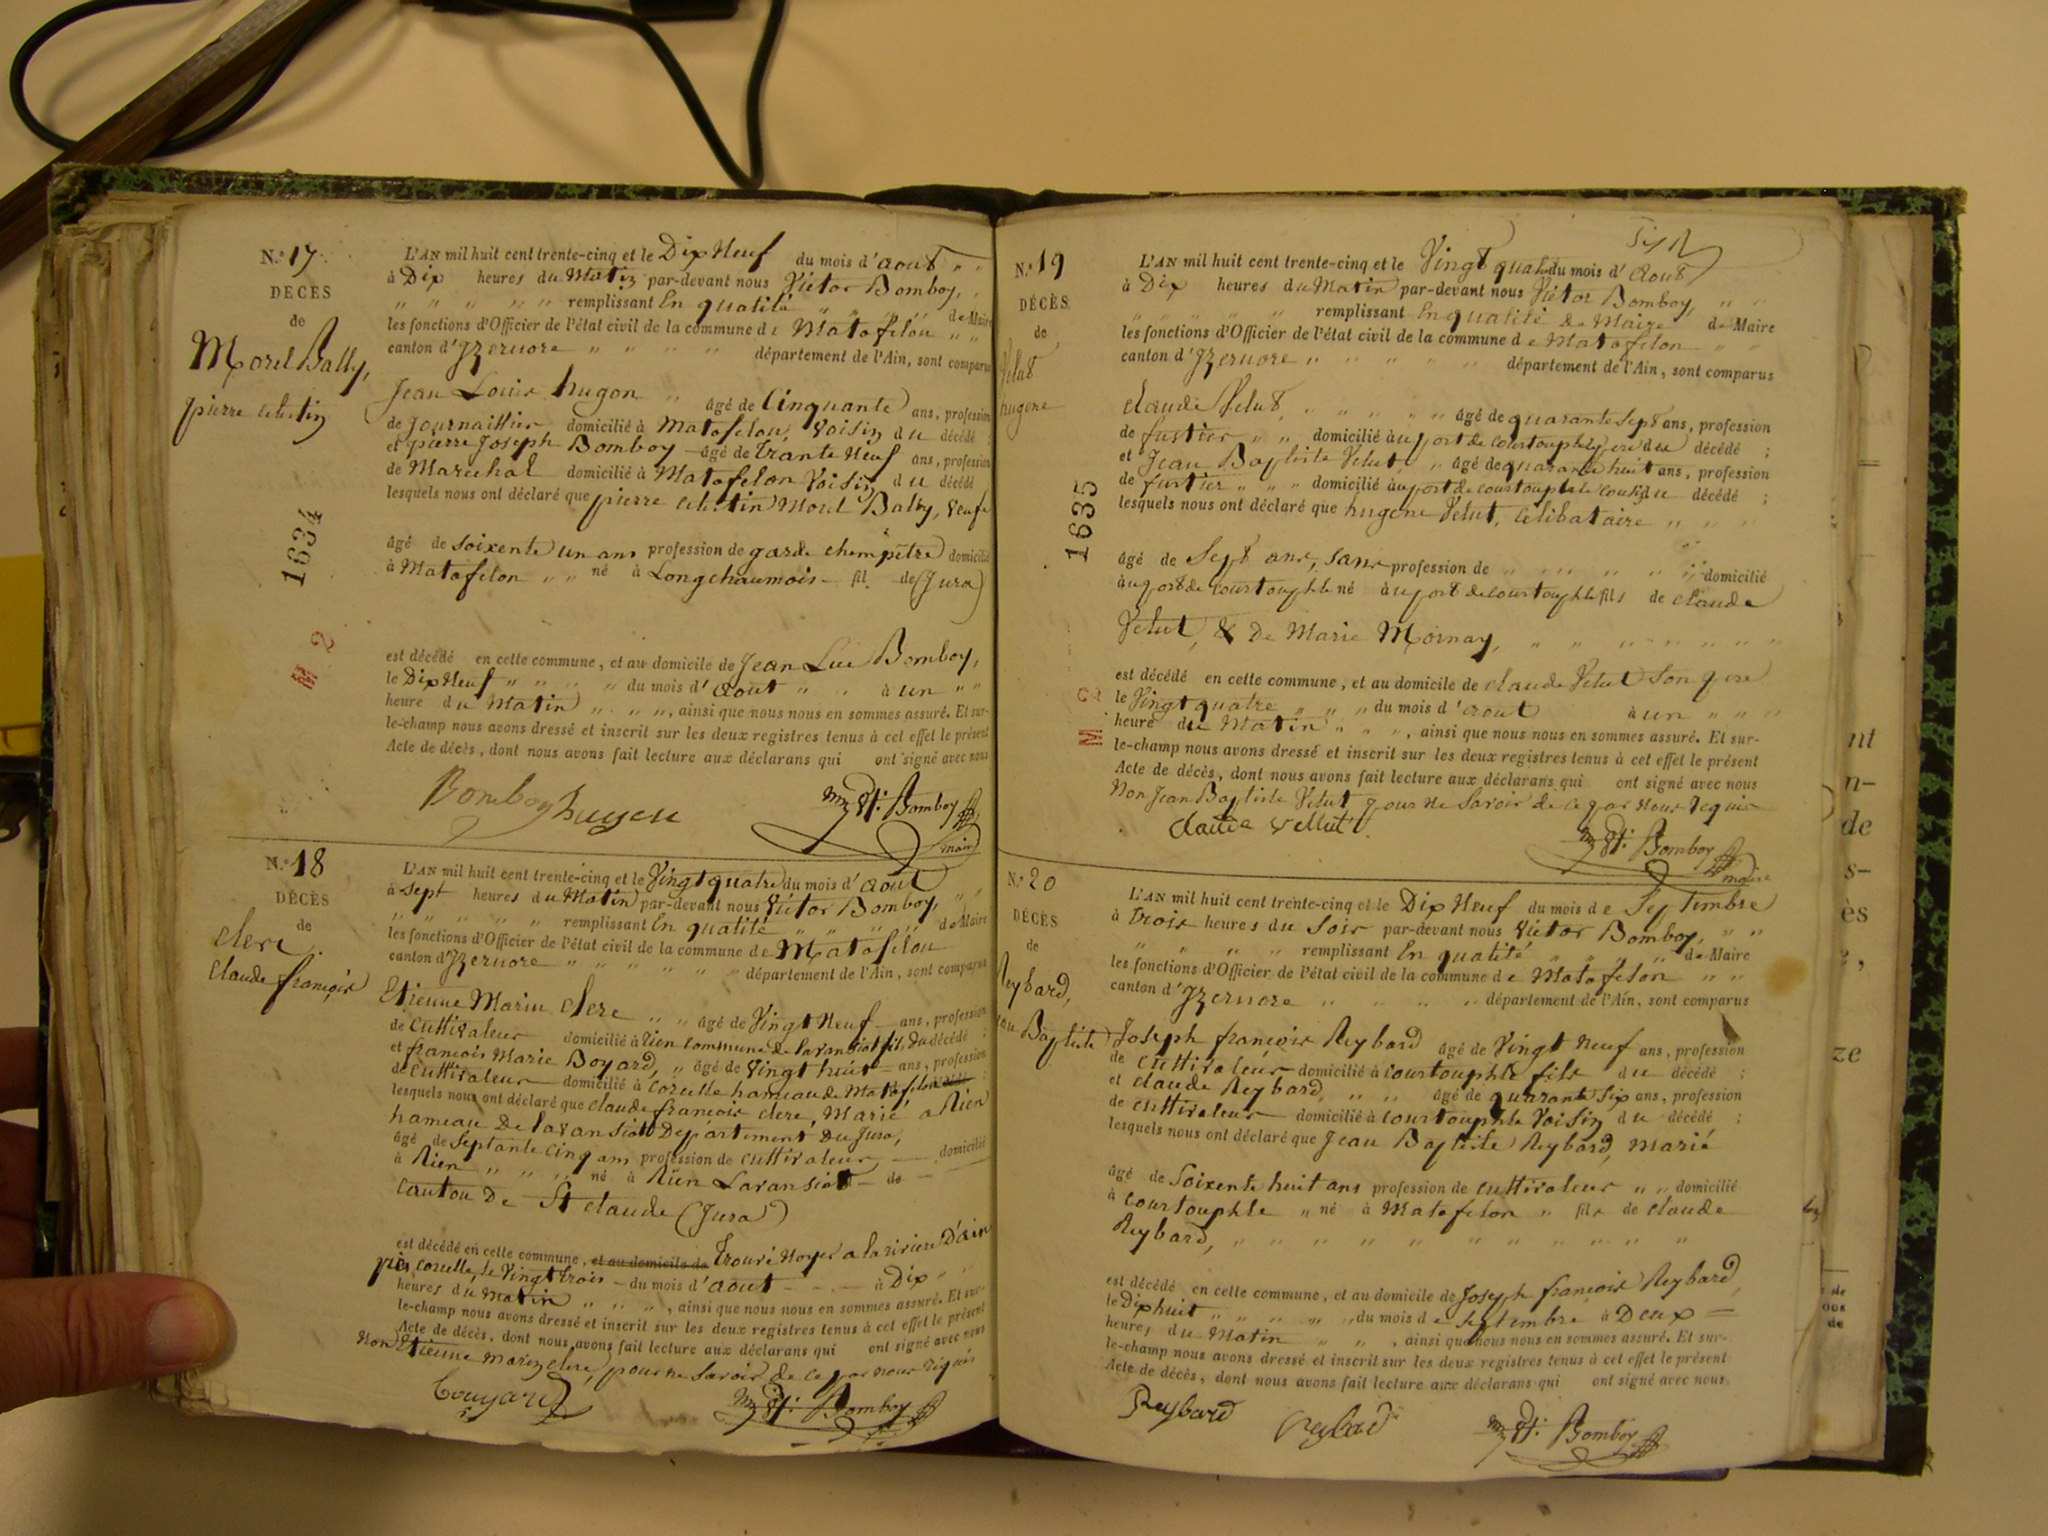 N.° 17
DÉCÈS
de
Morel Bally,
pierre celestin
1634
M 2
L'AN mil huit cent trente-cinq et le Dix Neuf du mois d'aout
à Dix heures du Matin par-devant nous Victor Bomboy,
remplissant En qualité de Maire
les fonctions d'Officier de l'état civil de la commune de Matafelon
canton d'Izernore département de l'Ain, sont comparus
Jean Louis hugon âgé de Cinquante ans, profession
de Journaillier domicilié à Matafelon, Voisin du décédé ;
et pierre Joseph Bomboy âgé de trante Neuf ans, profession
de Marechal domicilié à Matafelon Voisin du décédé
lesquels nous ont déclaré que pierre celestin Morel Bally, veufe
âgé de soixente un ans profession de garde chempêtre domicilié
à Matafelon né à Longchaumois fil. de (Jura)
est décédé en cette commune, et au domicile de Jean Luc Bomboy,
le Dix Neuf du mois d'aout à un
heure du Matin, ainsi que nous nous en sommes assuré. Et sur-
le-champ nous avons dressé et inscrit sur les deux registres tenus à cet effet le présent
Acte de décès, dont nous avons fait lecture aux déclarans qui ont signé avec nous
Bomboy hugon Bomboy
maire
N.° 18
DÉCÈS
de
clerc
claude françois
L'AN mil huit cent trente-cinq et le Vingt quatre du mois d'aout
à sept heures du Matin par-devant nous Victor Bomboy,
remplissant En qualité de Maire
les fonctions d'Officier de l'état civil de la commune de Matafelon
canton d'Izernore département de l'Ain, sont comparus
Etienne Marin clerc âgé de Vingt Neuf ans, profession
de Cultivateur domicilié à Rien commune de lavansiat fils du décédé ;
et francois Marie Boyard, âgé de Vingt huit ans, profession
de Cultivateur domicilié à Corcelle hameau de Matafelon
lesquels nous ont déclaré que claude francois clerc, Marié a Rien
hameau De lavansiat Departiment Du Jura,
âgé de septante cinq ans profession de cultivateur domicilié
à Rien né à Rien Lavansiat de
canton De St claude (Jura)
est décédé en cette commune, et au domicile de trouvé Noyer a la riviere D'ain
près corcelle, le Vingt trois du mois d'aout à Dix
heures du Matin, ainsi que nous nous en sommes assuré. Et sur-
le-champ nous avons dressé et inscrit sur les deux registres tenus à cet effet le présent
Acte de décès, dont nous avons fait lecture aux déclarans qui ont signé avec nous
Non Etienne Marin clerc, pour ne savoir de ce par nous réquis
Bomboy
N.° 19
DÉCÈS
de
Velut
hugene
1635
M 2
L'AN mil huit cent trente-cinq et le Vingt quatre du mois d'aout
à Dix heures du Matin par-devant nous Victor Bomboy,
remplissant En qualité de Maire de Maire
les fonctions d'Officier de l'état civil de la commune de Matafelon
canton d'Izernore département de l'Ain, sont comparus
claude Velut, âgé de quarante sept ans, profession
de fustier domicilié à uport de courtouphle, pere du décédé ;
et Jean Baptiste Velut âgé de quarante huit ans, profession
de fustier domicilié à uport de courtouphle cousin du décédé ;
lesquels nous ont déclaré que hugene Velut, celibataire
âgé de Sept ans, sans profession de domicilié
à uport de courtouphle né à uport de courtouphle fils de claude
Velut, & De Marie Moinay,
est décédé en cette commune, et au domicile de claude Velut Son pere
le Vingt quatre du mois d'aout à un
heure du Matin, ainsi que nous nous en sommes assuré. Et sur-
le-champ nous avons dressé et inscrit sur les deux registres tenus à cet effet le présent
Acte de décès, dont nous avons fait lecture aux déclarans qui ont signé avec nous
Non Jean Baptiste Velut pour ne savoir de ce par nous requis
claude vellut Bomboy
maire
N.° 20
DÉCÈS
de
Reybard,
Baptiste
L'AN mil huit cent trente-cinq et le Dix Neuf du mois de Septembre
à trois heures du Soir par-devant nous Victor Bomboy,
remplissant En qualité de Maire
les fonctions d'Officier de l'état civil de la commune de Matafelon
canton d'Izernore département de l'Ain, sont comparus
Joseph francois Reybard âgé de Vingt neuf ans, profession
de Cultivateur domicilié à courtouphle fils du décédé ;
et claude Reybard, âgé de quarante Six ans, profession
de cultivateur domicilié à courtouphle Voisin du décédé ;
lesquels nous ont déclaré que Jean Baptiste Reybard, Marié
âgé de Soixente huit ans profession de cultivateur domicilié
à courtouphle né à Matafelon fils de claude
Reybard,
est décédé en cette commune, et au domicile de Joseph francois Reybard,
le Dix huit du mois de septembre à Deux
heures du Matin, ainsi que nous nous en sommes assuré. Et sur-
le-champ nous avons dressé et inscrit sur les deux registres tenus à cet effet le présent
Acte de décès, dont nous avons fait lecture aux déclarans qui ont signé avec nous
Reybard Reybard Bomboy